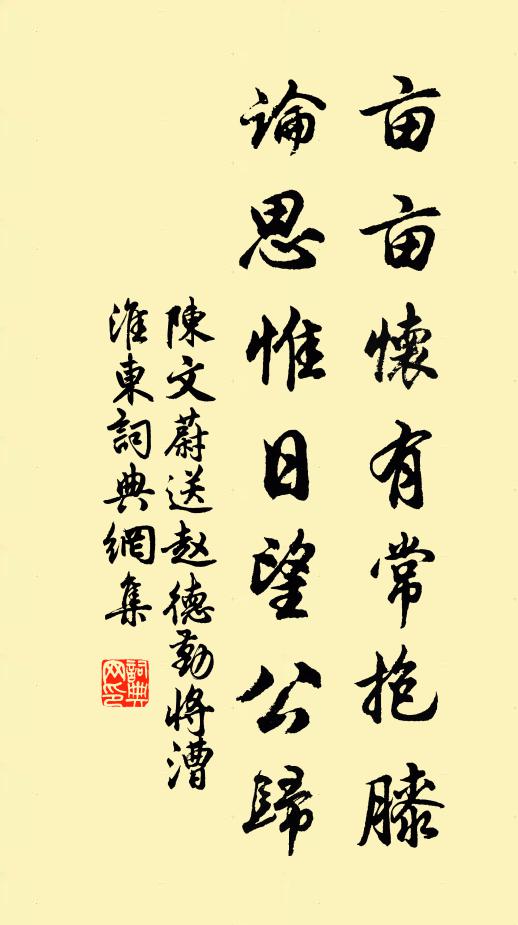 亩亩懷有常抱膝
論思惟日望公歸
陳文蔚送赵德勤将漕
淮東詞典網集
詞典网印